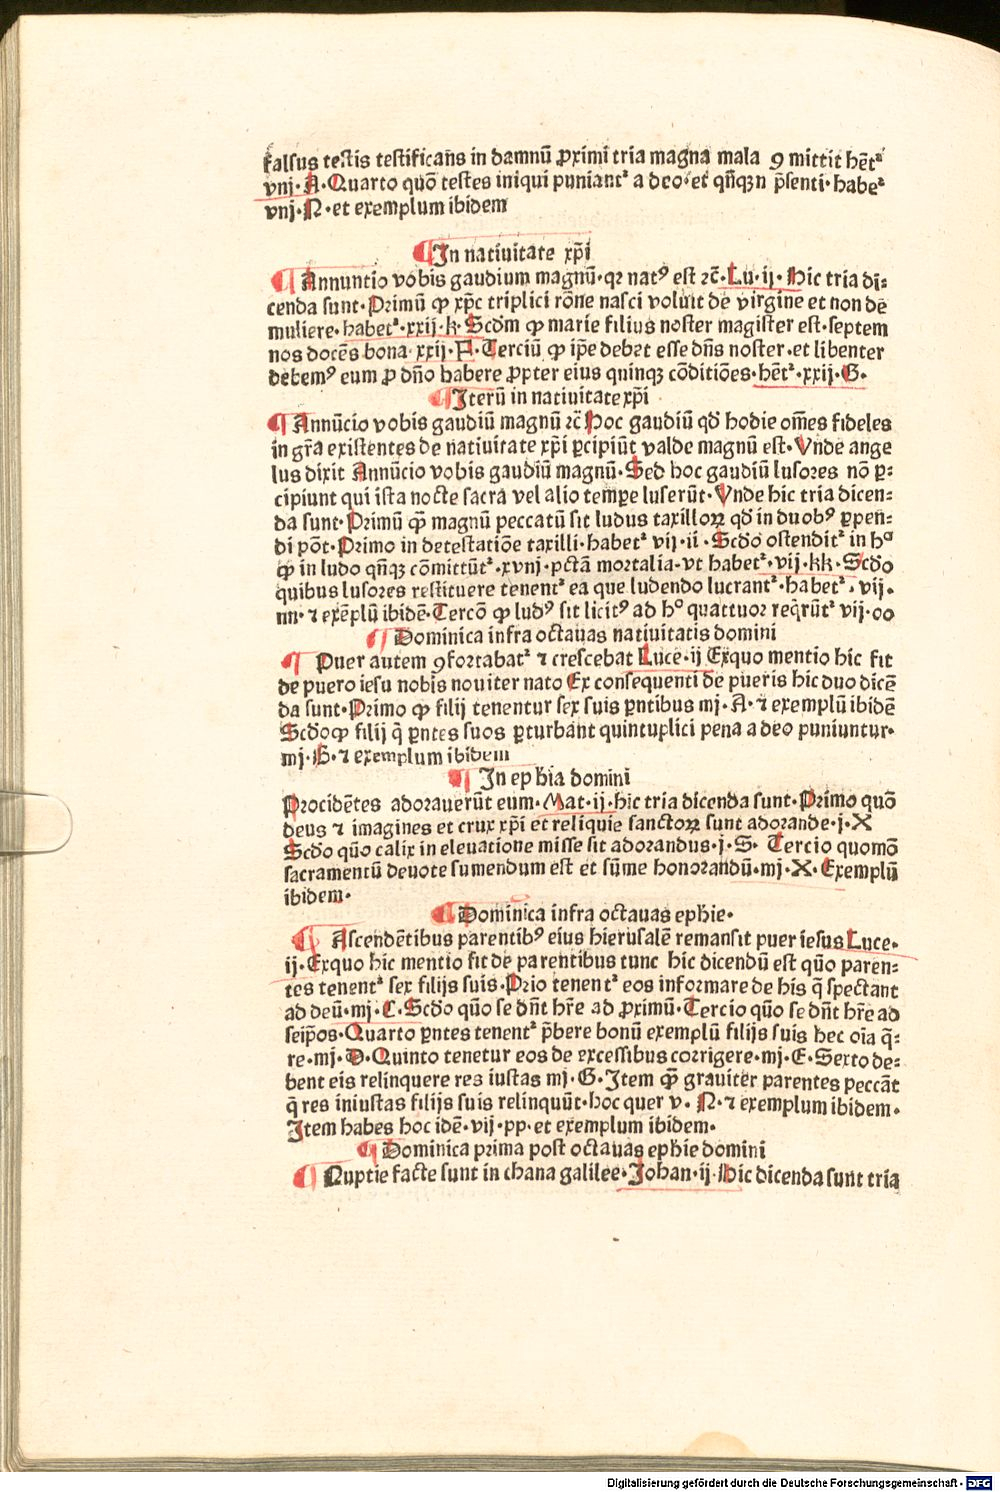 falsus testis testificans in damnū ꝓximi tria magna mala ꝯ mittit hētᷣ
vnj·A·Quarto quō testes iniqui puniantᷣ a deo·et qn̄qꝫ n p̄senti·habeᷣ
vnj·N·et exemplum ibidem
¶In natiuitate xp̄i
¶ Annuntio vobis gaudium magnū·qꝛ natꝰ est ⁊c̄·Lu·ij·Hic tria di⸗
cenda sunt·Primū ꝙ xp̄c triplici rōne nasci voluit de virgine et non de
muliere·habetᷣ·xxij·k·Scd̄m ꝙ marie filius noster magister est·septem
nos docēs bona·xxij·F·Terciū ꝙ ip̄e debet esse dn̄s noster·et libenter
debemꝰ eum ꝓ dn̄o habere ꝓpter eius quinqꝫ cōditiōes·hētᷣ·xxij·G·
¶Iterū in natiuitate xp̄i·
¶ Annūcio vobis gaudiū magnū ⁊c̄ Hoc gaudiū qd̄ hodie om̄es fideles
in gr̄a existentes de natiuitate xp̄i ꝑcipiūt valde magnū est·Vnde ange
lus dixit Annūcio vobis gaudiū magnū·Sed hoc gaudiū lusores nō ꝑ⸗
cipiunt qui ista nocte sacra vel alio tempꝑe luserūt·Vnde hic tria dicen⸗
da sunt·Primū ꝙ magnū peccatū sit ludus taxilloꝝ qd̄ in duobꝰ ꝑpen⸗
di pōt·Primo in detestatiōe taxilli·habetᷣ vij·ii·Scd̄o ostenditᷣ in hᵒ
ꝙ in ludo qn̄qꝫ cōmittūtᷣ·xvnj·pctā mortalia·vt habetᷣ·vij·kk·Scd̄o
quibus lusores restituere tenentᷣ ea que ludendo lucrantᷣ·habetᷣ·vij·
nn·⁊ exēplū ibidē·Tercō ꝙ ludꝰ sit licitꝰ ad hᵒ quattuor reqͥrūtᷣ vij·oo
¶ Dominica infra octauas natiuitatis domini
¶ Puer autem ꝯfortabatᷣ ⁊ crescebat Luce·ij Exquo mentio hic fit
de puero iesu nobis nouiter nato Ex consequenti de pueris hic duo dicē
da sunt·Primo ꝙ filij tenentur sex suis ꝑntibus mj·A·⁊ exemplū ibidē
Scd̄oꝙ filij q̄ ꝑntes suos ꝑturbant quintuplici pena a deo puniuntur·
mj·B·⁊ exemplum ibidem
¶ In ephīa domini
Procidētes adorauerūt eum·Mat·ij·hic tria dicenda sunt·Primo quō
deus ⁊ imagines et crux xp̄i et reliquie sanctoꝝ sunt adorande·j·X
Scd̄o quō calix in eleuatione misse sit adorandus·j·S·Tercio quomō
sacramentū deuote sumendum est et sūme honorandū·mj·X·Exemplū
ibidem·
¶Dominica infra octauas ephīe·
¶ Ascendētibus parentibꝰ eius hierusalē remansit puer iesus Luce·
ij·Exquo hic mentio fit de parentibus tunc hic dicendū est quō paren⸗
tes tenentᷣ sex filijs suis·Prio tenentᷣ eos informare de his q̄ spectant
ad deū·mj·C·Scd̄o quō se dn̄t hr̄e ad ꝓximū·Tercio quō se dn̄t hr̄e ad
seip̄os·Quarto ꝑntes tenentᷣ p̄bere bonū exemplū filijs suis hec oīa q̄⸗
re·mj·D·Quinto tenetur eos de excessibus corrigere·mj·E·Sexto de⸗
bent eis relinquere res iustas mj·G·Item ꝙ grauiter parentes peccāt
q̄ res iniustas filijs suis relinquūt·hoc quer v·N·⁊ exemplum ibidem·
Item habes hoc idē·vij·pp·et exemplum ibidem·
¶ Dominica prima post octauas ephīe domini
¶ Nuptie facte sunt in chana galilee·Johan·ij·Hic dicenda sunt tria
Digitalisierung gefördert durch die Deutsche Forschungsgemeinschaft - DFG